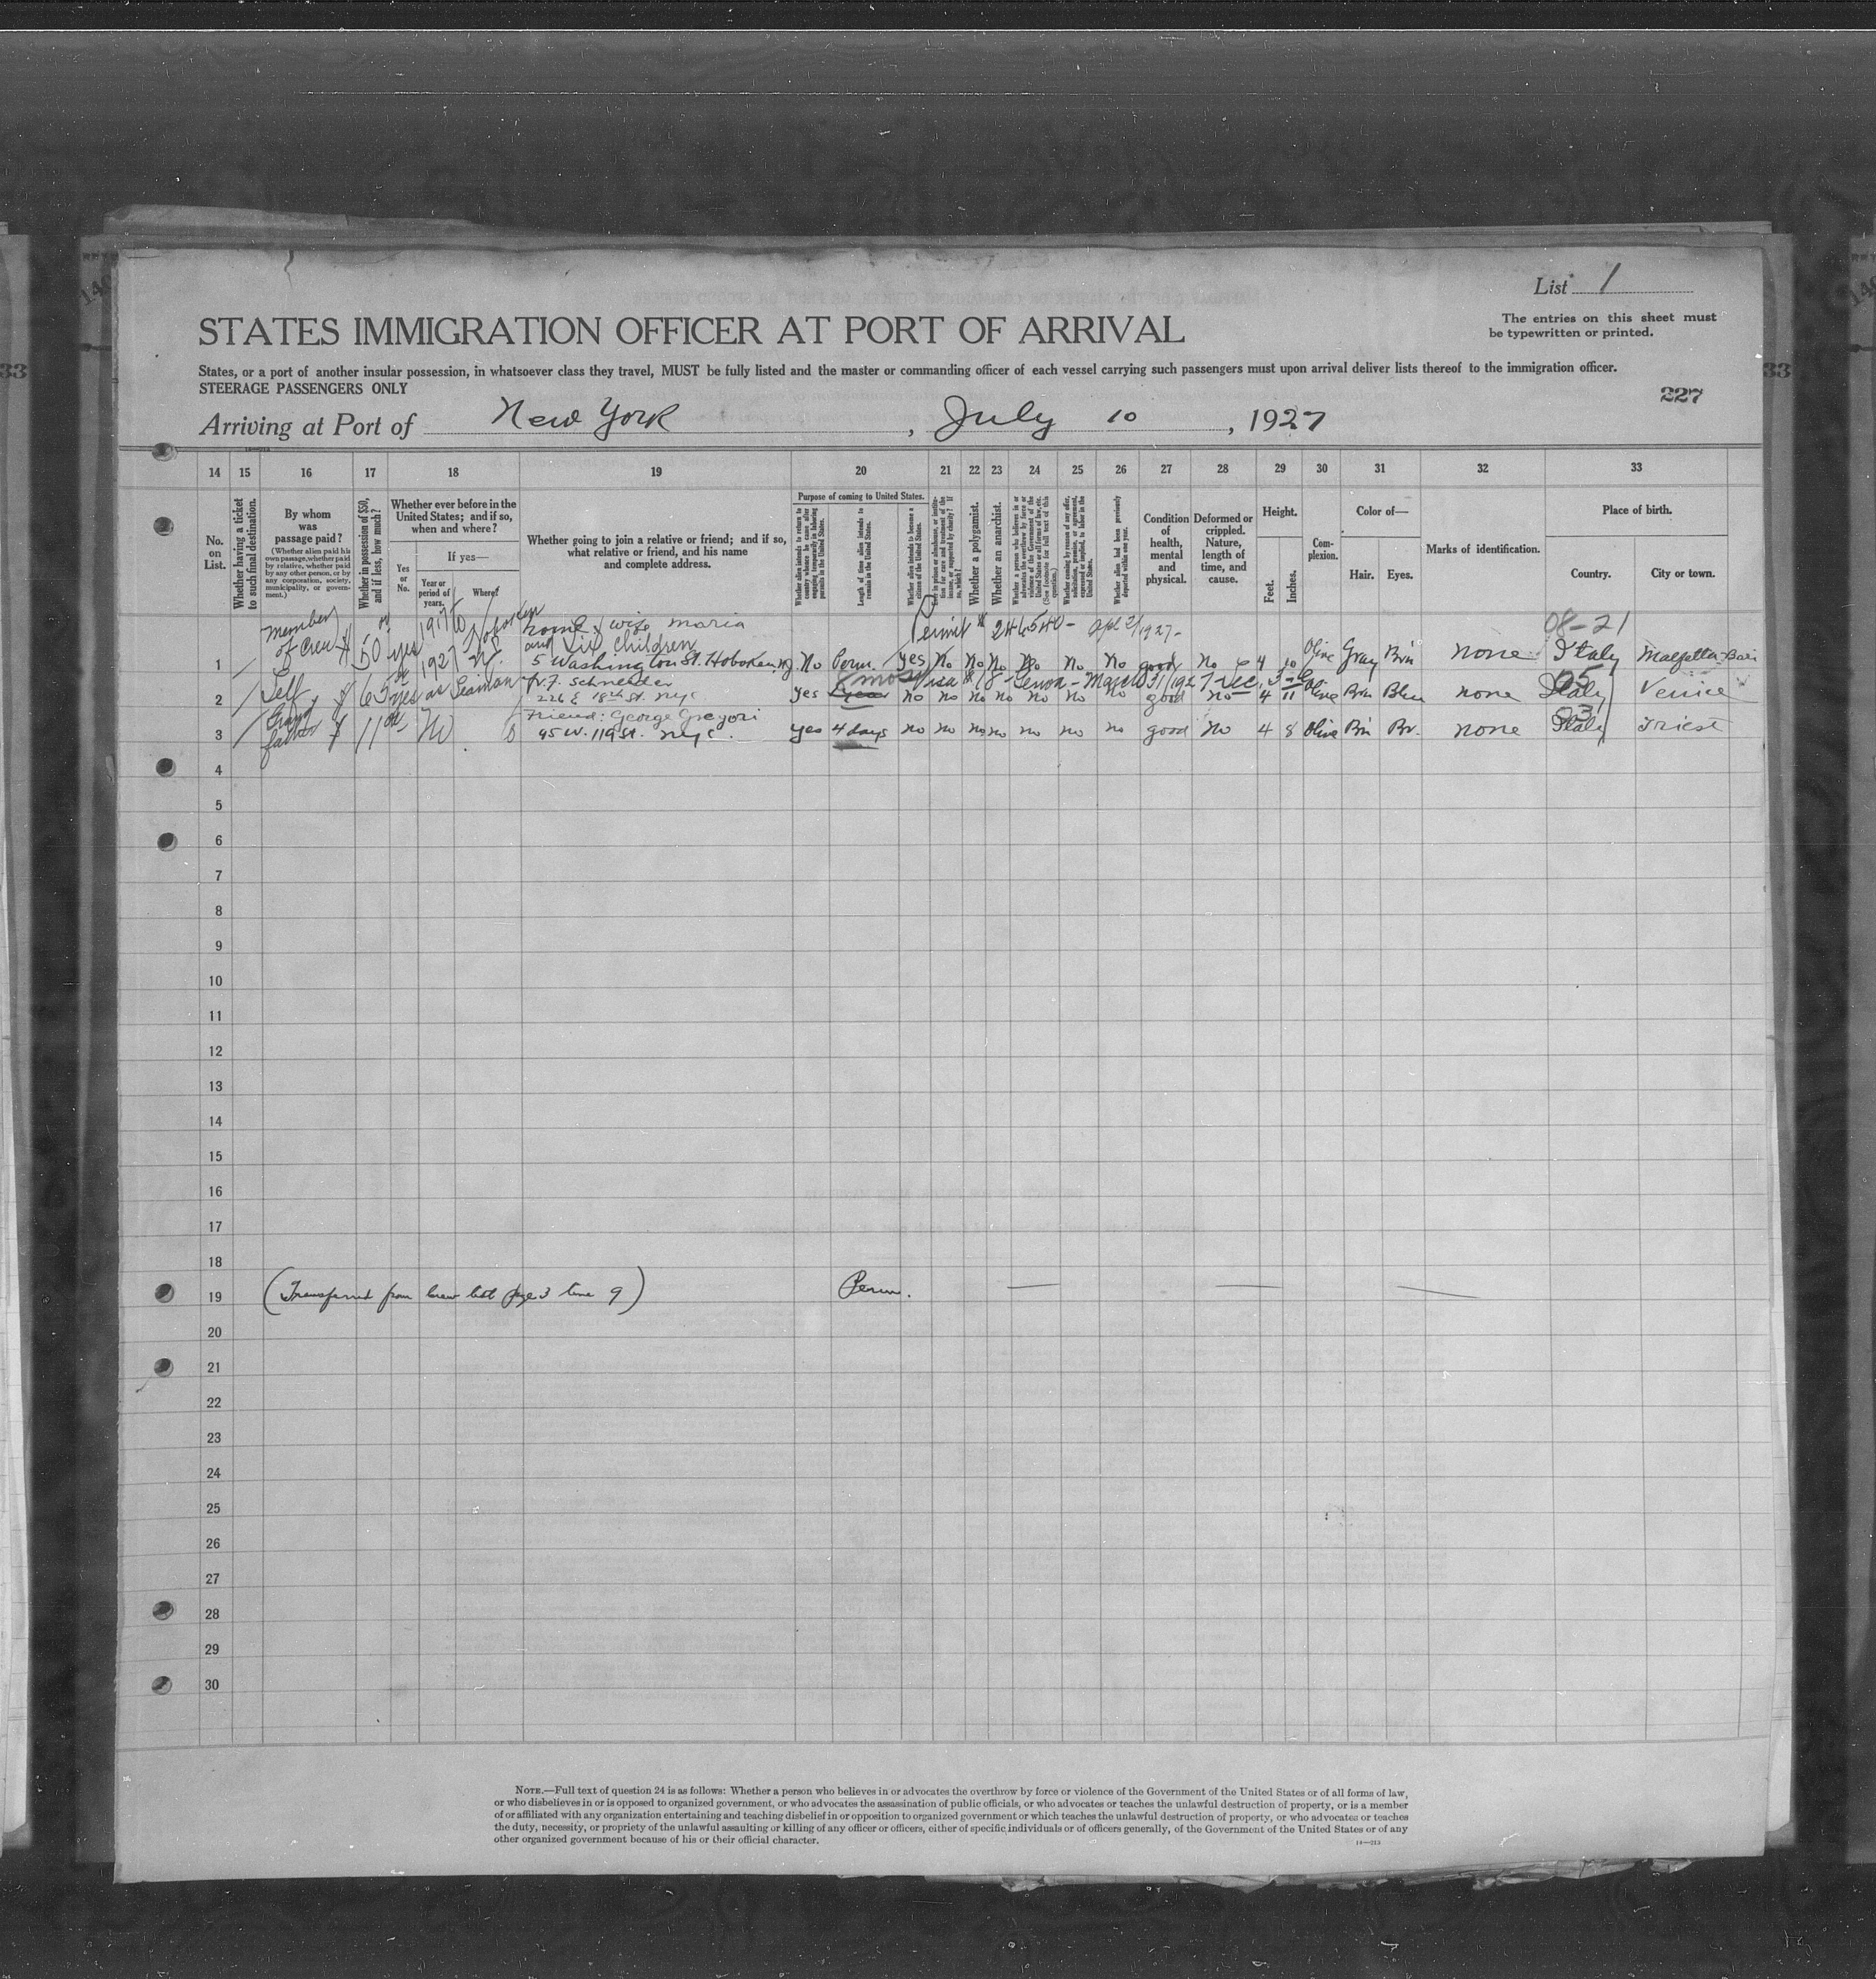 List 1
The entries on this sheet must
be typewritten or printed.
STATES IMMIGRATION OFFICER AT PORT OF ARRIVAL
States, or a port of another insular possession, in whatsoever class they travel, MUST be fully listed and the master or commanding officer of each vessel carrying such passengers must upon arrival deliver lists thereof to the immigration officer.
STEERAGE PASSENGERS ONLY
227
Arriving at Port of New York, July 10, 1927
14 15 16 17 18 19 20 21 22 23 24 25 26 27 28 29 30 31 32 33
No. on List.
Whether having a ticket to such final destination.
By whom was passage paid?
(Whether alien paid his own passage, whether paid by relative, whether paid by any other person, or by any corporation, society, municipality, or government.)
Whether in possession of $50, and if less, how much?
Whether ever before in the United States; and if so, when and where?
Yes or No.
If yes—
Year or period of years.
Where?
Whether going to join a relative or friend; and if so, what relative or friend, and his name and complete address.
Purpose of coming to United States.
Whether alien intends to return to country whence he came after engaging temporarily in laboring pursuits in the United States.
Length of time alien intends to remain in the United States.
Whether alien intends to become a citizen of the United States.
Whether a polygamist.
Whether an anarchist.
Whether alien had been previously deported within one year.
Condition of health, mental and physical.
Deformed or crippled. Nature, length of time, and cause.
Height.
Feet.
Inches.
Complexion.
Color of—
Hair.
Eyes.
Marks of identification.
Place of birth.
Country.
City or town.
Permit # 246540 - Apl 2/1927- 08-21
1 Member of Crew $ 50 yes 1917 to 1927 Hoboken N.J. home, wife Maria and six children
5 Washington St. Hoboken NJ. No Perm. yes No No No No No No good No 4 10 Olive Gray Brn none Italy Molfetta-Bari
8 mos Visa # 8 - Genoa - March 31/1927 - Sec. 3-2 05
2 Self $ 65 yes as Seaman Fr. F. Schneider
226 E 18th St. nyc yes 1 year no no no no no no no good no 4 11 Olive Brn Blue none Italy Venice
03
3 Grand father $ 11 No Friend: George Gregori
95 W. 119 St. nyc. yes 4 days no no no no no no no good No 4 8 Olive Brn Br. none Italy Triest
4
5
6
7
8
9
10
11
12
13
14
15
16
17
18
19 (Transferred from crew list page 3 line 9) Perm.
20
21
22
23
24
25
26
27
28
29
30
NOTE.—Full text of question 24 is as follows: Whether a person who believes in or advocates the overthrow by force or violence of the Government of the United States or of all forms of law,
or who disbelieves in or is opposed to organized government, or who advocates the assassination of public officials, or who advocates or teaches the unlawful destruction of property, or is a member
of or affiliated with any organization entertaining and teaching disbelief in or opposition to organized government or which teaches the unlawful destruction of property, or who advocates or teaches
the duty, necessity, or propriety of the unlawful assaulting or killing of any officer or officers, either of specific individuals or of officers generally, of the Government of the United States or of any
other organized government because of his or their official character.
14—213